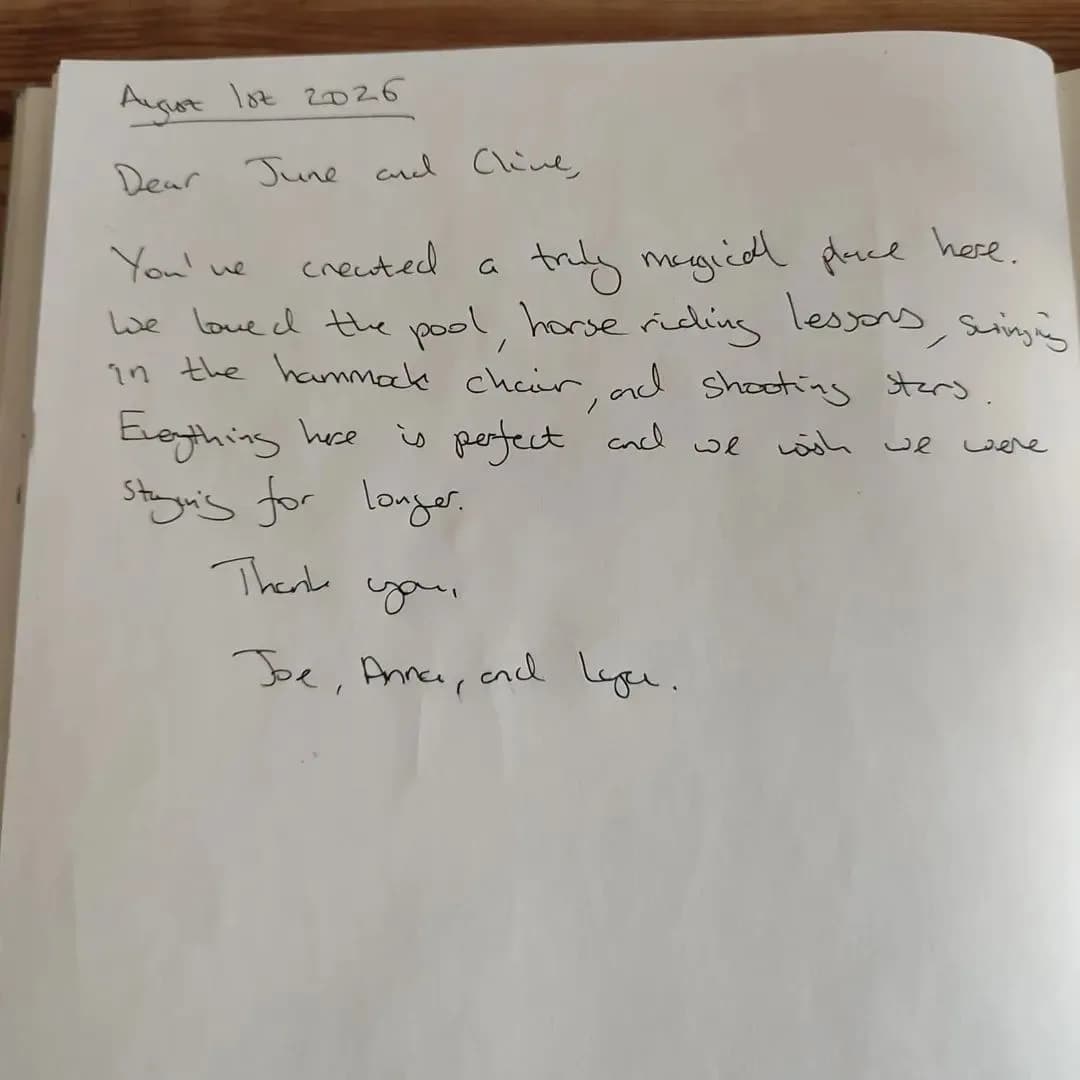 August 1st 2026
Dear June and Clive,
You've created a truly magical place here.
We loved the pool, horse riding lessons, swinging
in the hammock chair, and shooting stars.
Everything here is perfect and we wish we were
staying for longer.
Thank you,
Joe, Anna, and